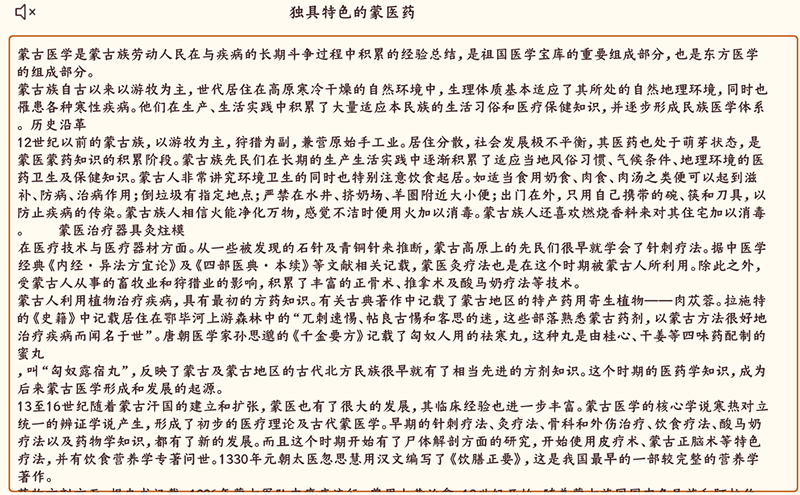 独具特色的蒙医药
蒙古医学是蒙古族劳动人民在与疾病的长期斗争过程中积累的经验总结，是祖国医学宝库的重要组成部分，也是东方医学
的组成部分。
蒙古族自古以来以游牧为主，世代居住在高原寒冷干燥的自然环境中，生理体质基本适应了其所处的自然地理环境，同时也
罹患各种寒性疾病。他们在生产、生活实践中积累了大量适应本民族的生活习俗和医疗保健知识，并逐步形成民族医学体系
。历史沿革
12世纪以前的蒙古族，以游牧为主，狩猎为副，兼营原始手工业。居住分散，社会发展极不平衡，其医药也处于萌芽状态，是
蒙医蒙药知识的积累阶段。蒙古族先民们在长期的生产生活实践中逐渐积累了适应当地风俗习惯、气候条件、地理环境的医
药卫生及保健知识。蒙古人非常讲究环境卫生的同时也特别注意饮食起居。如适当食用奶食、肉食、肉汤之类便可以起到滋
补、防病、治病作用；倒垃圾有指定地点；严禁在水井、挤奶场、羊圈附近大小便；出门在外，只用自己携带的碗、筷和刀具，以
防止疾病的传染。蒙古族人相信火能净化万物，感觉不洁时便用火加以消毒。蒙古族人还喜欢燃烧香料来对其住宅加以消毒
。 蒙医治疗器具灸炷模
在医疗技术与医疗器材方面。从一些被发现的石针及青铜针来推断，蒙古高原上的先民们很早就学会了针刺疗法。据中医学
经典《内经·异法方宜论》及《四部医典·本续》等文献相关记载，蒙医灸疗法也是在这个时期被蒙古人所利用。除此之外，
受蒙古人从事的畜牧业和狩猎业的影响，积累了丰富的正骨术、推拿术及酸马奶疗法等技术。
蒙古人利用植物治疗疾病，具有最初的方药知识。有关古典著作中记载了蒙古地区的特产药用寄生植物——肉苁蓉。拉施特
的《史籍》中记载居住在鄂毕河上游森林中的“兀剌速惕、帖良古惕和客思的迷，这些部落熟悉蒙古药剂，以蒙古方法很好地
治疗疾病而闻名于世”。唐朝医学家孙思邈的《千金要方》记载了匈奴人用的祛寒丸，这种丸是由桂心、干姜等四味药配制的
蜜丸
，叫“匈奴露宿丸”，反映了蒙古及蒙古地区的古代北方民族很早就有了相当先进的方剂知识。这个时期的医药学知识，成为
后来蒙古医学形成和发展的起源。
13至16世纪随着蒙古汗国的建立和扩张，蒙医也有了很大的发展，其临床经验也进一步丰富。蒙古医学的核心学说寒热对立
统一的辨证学说产生，形成了初步的医疗理论及古代蒙医学。早期的针刺疗法、灸疗法、骨科和外伤治疗、饮食疗法、酸马奶
疗法以及药物学知识，都有了新的发展。而且这个时期开始有了尸体解剖方面的研究，开始使用皮疗术、蒙古正脑术等特色
疗法，并有饮食营养学专著问世。1330年元朝太医忽思慧用汉文编写了《饮膳正要》，这是我国最早的一部较完整的营养学
著作。